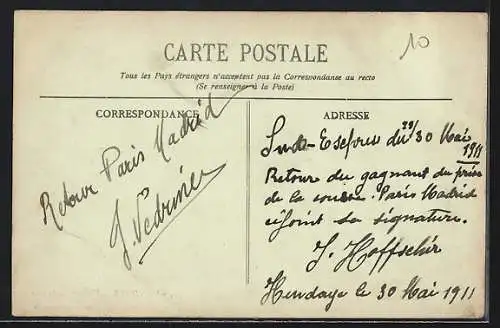 CARTE POSTALE
10
Tous les Pays étrangers n'acceptent pas la Correspondance au recto
(Se renseigner à la Poste)
CORRESPONDANCE
Retour Paris Madrid
J. Vedrines
ADRESSE
Sud-Express du 29/30 Mai
1911
Retour du gagnant du prix
de la course. Paris Madrid
ci joint sa signature.
J. Hoffschir
Hendaye le 30 Mai 1911